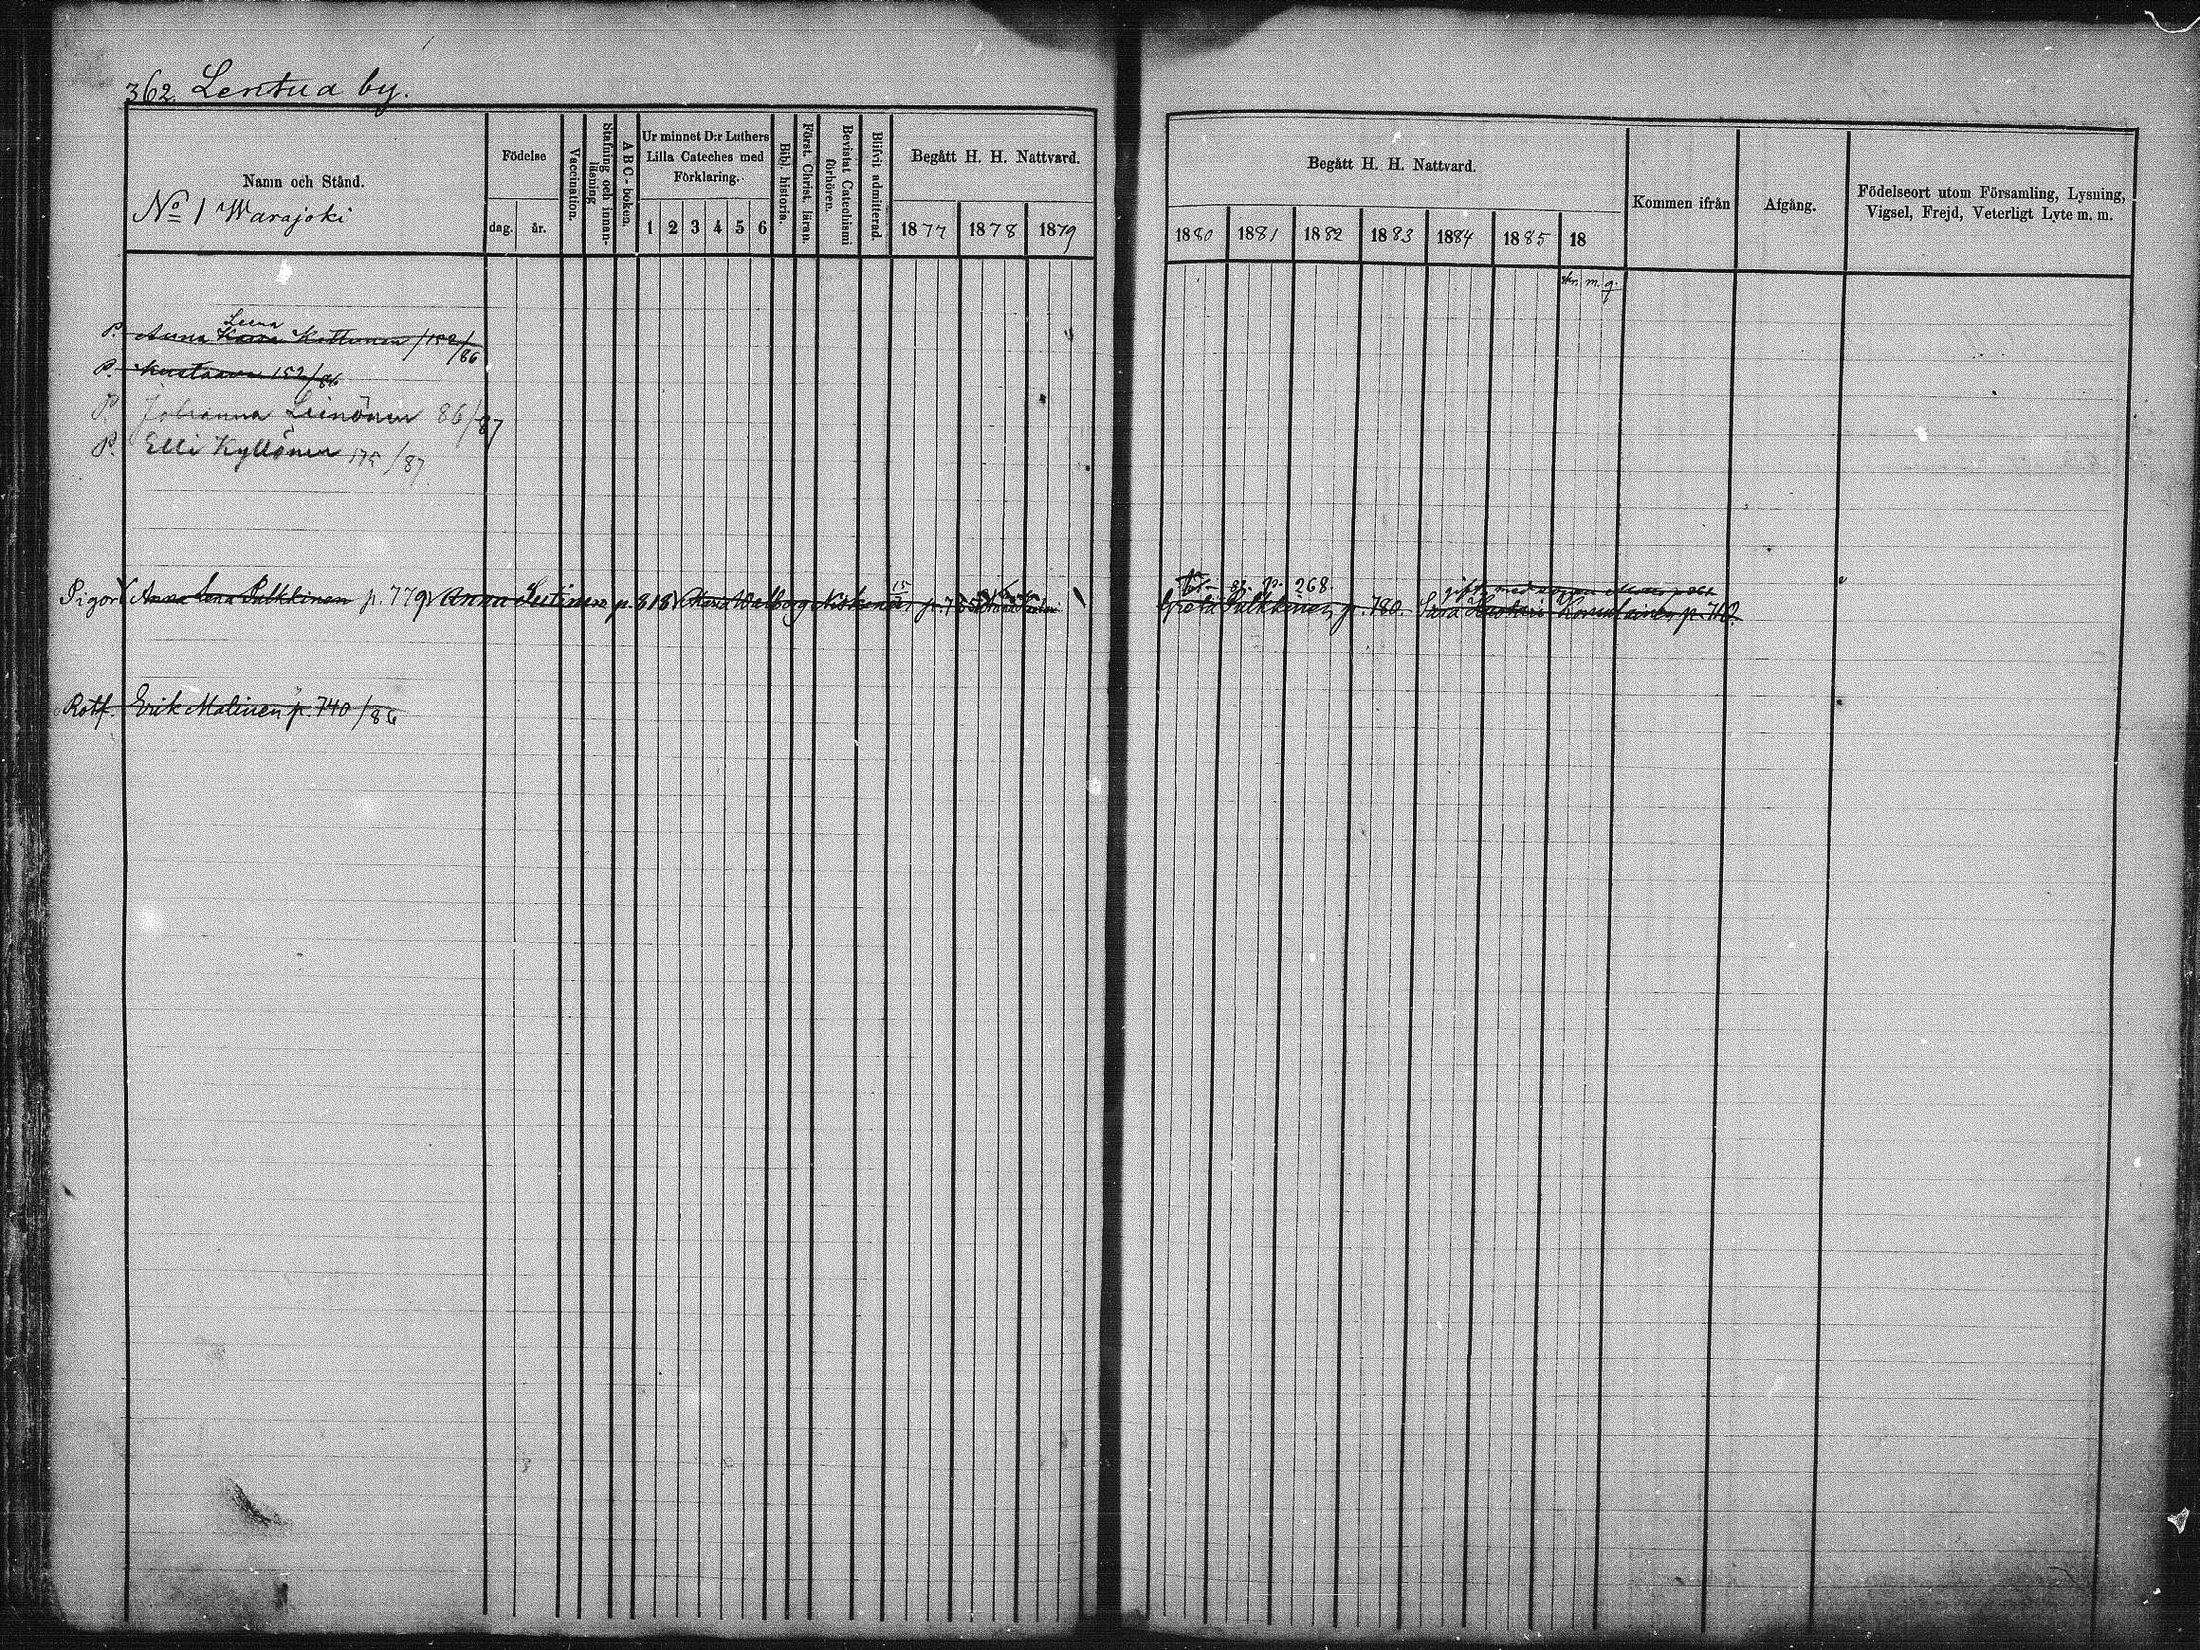 362. Lentua by.
Namn och Stånd.
No 1 Warajoki
Födelse
dag. år.
Vaccination.
Stafning och innanläsning
A B C-boken.
Ur minnet D:r Luthers
Lilla Cateches med
Förklaring.
1 2 3 4 5 6
Bibl. historia.
Först. Christ. läran.
Bevistat Catechismi förhören.
Blifvit admitterad.
Begått H. H. Nattvard.
1877 1878 1879
Begått H. H. Nattvard.
1880 1881 1882 1883 1884 1885 18
Kommen ifrån
Afgång.
Födelseort utom Församling, Lysning,
Vigsel, Frejd, Veterligt Lyte m. m.
Leena
P. Anna Kettunen /152/86
P. Kustaava 152/86
P. Johanna Leinonen 86/87
P. Elli Kyllönen 175/87
Pigor Anna Lena Pulkkinen p. 779 Anna p. 818 Maria Walborg p.
p. 268.
Greta Pulkkinen p. 780.
Rotf. Erik Malinen p. 740/86